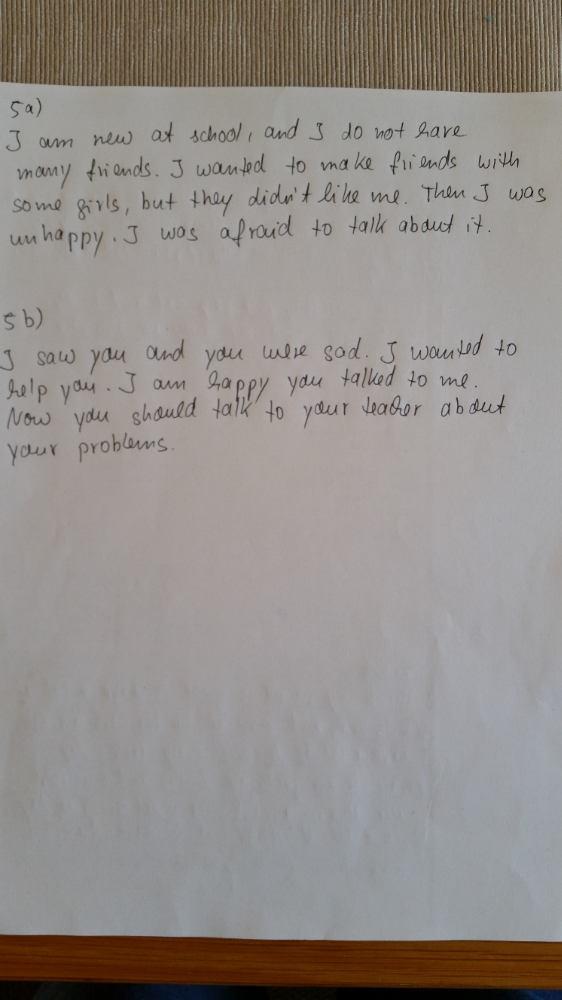 5a)
I am new at school, and I do not have
many friends. I wanted to make friends with
some girls, but they didn't like me. Then I was
unhappy. I was afraid to talk about it.
5b)
I saw you and you were sad. I wanted to
help you. I am happy you talked to me.
Now you should talk to your teacher about
your problems.